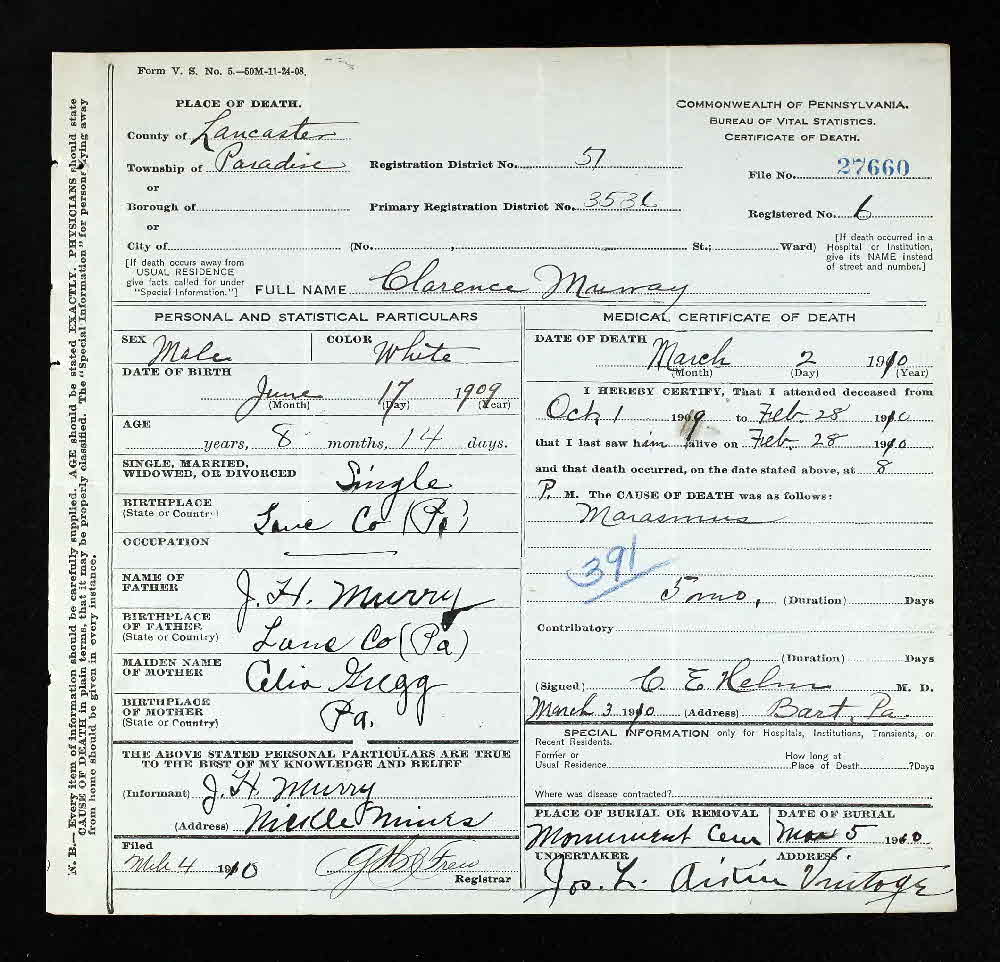 Form V. S. No. 5.—50M-11-24-08.
PLACE OF DEATH.
County of Lancaster
Township of Paradise
or
Borough of
or
City of (No. , St.; Ward)
[If death occurs away from
USUAL RESIDENCE
give facts called for under
"Special Information."]
Registration District No. 51
Primary Registration District No. 3536
COMMONWEALTH OF PENNSYLVANIA.
BUREAU OF VITAL STATISTICS.
CERTIFICATE OF DEATH.
File No. 27660
Registered No. 6
[If death occurred in a
Hospital or Institution,
give its NAME instead
of street and number.]
FULL NAME Clarence
PERSONAL AND STATISTICAL PARTICULARS
SEX Male COLOR White
DATE OF BIRTH
June 17 1909
(Month) (Day) (Year)
AGE
years, 8 months, 14 days.
SINGLE, MARRIED,
WIDOWED, OR DIVORCED Single
BIRTHPLACE
(State or Country) Lanc Co (Pa)
OCCUPATION
NAME OF
FATHER J. H. Murry
BIRTHPLACE
OF FATHER
(State or Country) Lanc Co (Pa)
MAIDEN NAME
OF MOTHER Celia Gregg
BIRTHPLACE
OF MOTHER
(State or Country) Pa.
THE ABOVE STATED PERSONAL PARTICULARS ARE TRUE
TO THE BEST OF MY KNOWLEDGE AND BELIEF
(Informant) J. H. Murry
(Address) Nickle Mines
Filed
4 1910
Registrar
MEDICAL CERTIFICATE OF DEATH
DATE OF DEATH
March 2 1910
(Month) (Day) (Year)
I HEREBY CERTIFY, That I attended deceased from
Oct 1 1909 to Feb. 28 1910
that I last saw him alive on Feb. 28 1910
and that death occurred, on the date stated above, at 8
P. M. The CAUSE OF DEATH was as follows:
Marasmus
391
5 mo, (Duration) Days
Contributory
(Duration) Days
(Signed) C. E. Helm M. D.
March 3 1910 (Address) Bart, Pa.
SPECIAL INFORMATION only for Hospitals, Institutions, Transients, or
Recent Residents.
Former or
Usual Residence
How long at
Place of Death ?Days
Where was disease contracted?
PLACE OF BURIAL OR REMOVAL
Monument Cem
DATE OF BURIAL
Mar 5 1910
UNDERTAKER
Jos. L.
ADDRESS
Vintage
N. B.—Every item of information should be carefully supplied. AGE should be stated EXACTLY. PHYSICIANS should state
CAUSE OF DEATH in plain terms, that it may be properly classified. The "Special Information" for persons dying away
from home should be given in every instance.